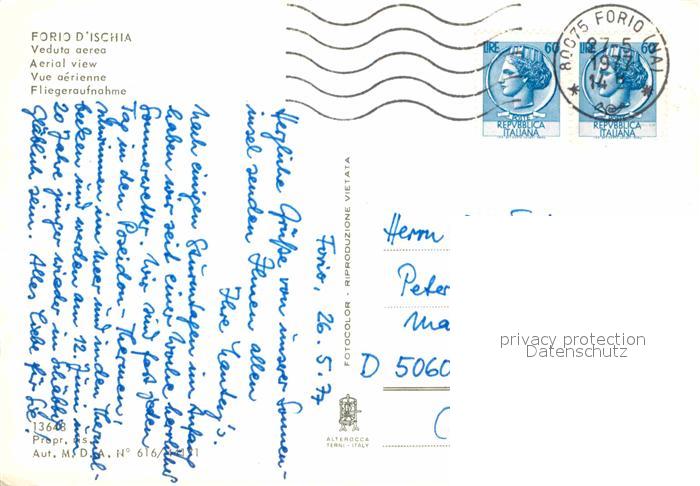 FORIO D'ISCHIA
Veduta aerea
Aerial view
Vue aérienne
Fliegeraufnahme
LIRE 60
POSTE
REPVBBLICA
ITALIANA
LIRE 60
POSTE
REPVBBLICA
ITALIANA
80075 FORIO (NA)
27-5
1977
14
Forio, 26.5.77
Herzliche Grüße von unserer Sonnen-
insel senden Ihnen allen
Ihre
Nach einigen Sturmtagen im Anfang
haben wir seit einer Woche herrliches
Sommerwetter. Wir sind fast jeden
Tag in den Poseidon-Thermen,
schwimmen im Meer und in den Thermal-
becken und werden am 12. Juni um
20 Jahre jünger wieder in
sein. Alles Liebe für Sie!
FOTOCOLOR - RIPRODUZIONE VIETATA
Herrn
Peter
Ma
D 5060
privacy protection
Datenschutz
ALTEROCCA
TERNI - ITALY
13648
Propr. ris.
Aut. M. D. A. N° 616/